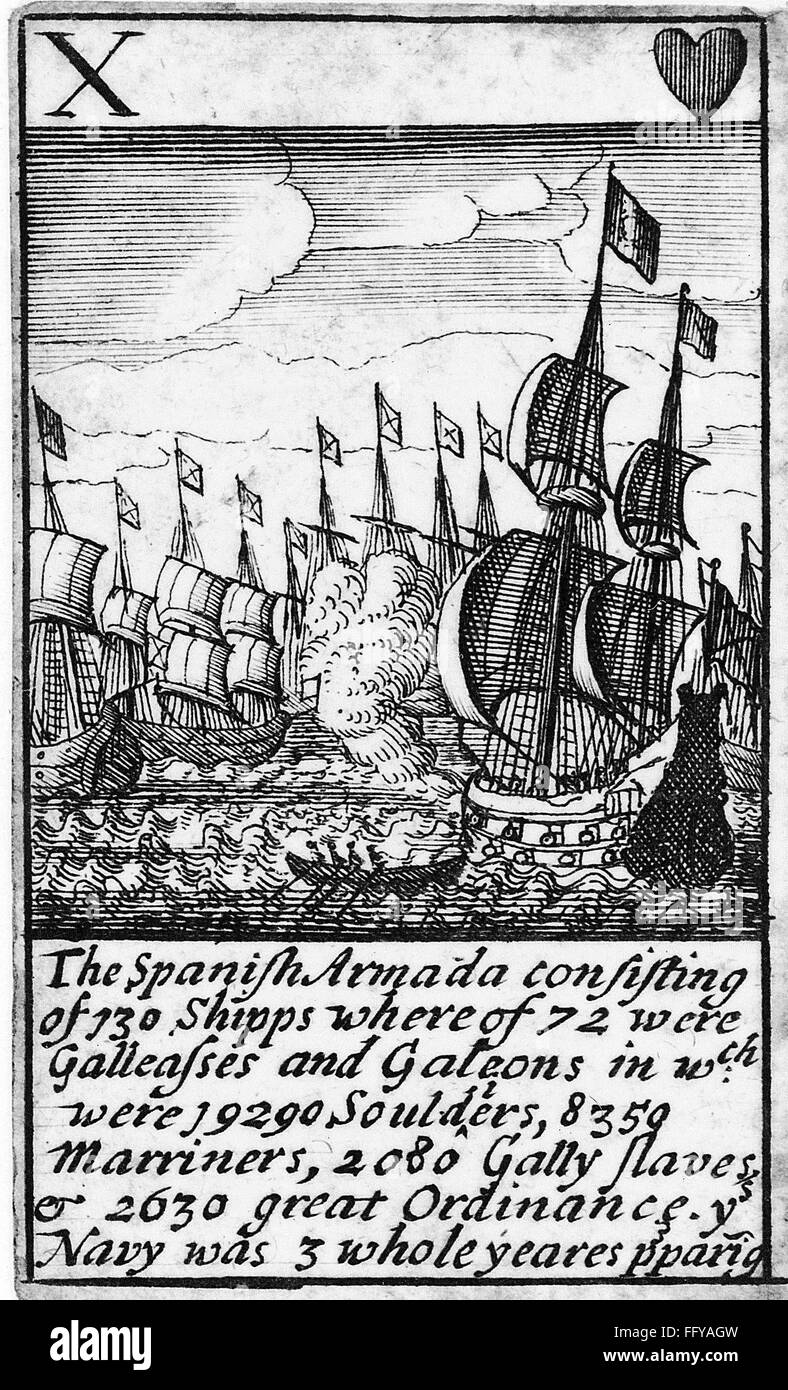 X
The Spaniſh Armada conſiſting
of 130 Shipps where of 72 were
Galleaſses and Galeons in wch
were 19290 Souldiers, 8359
Marriners, 2080 Gally ſlaves,
& 2630 great Ordinance. ys
Navy was 3 whole yeares pparig
alamy
Image ID: FFYAGW
www.alamy.com